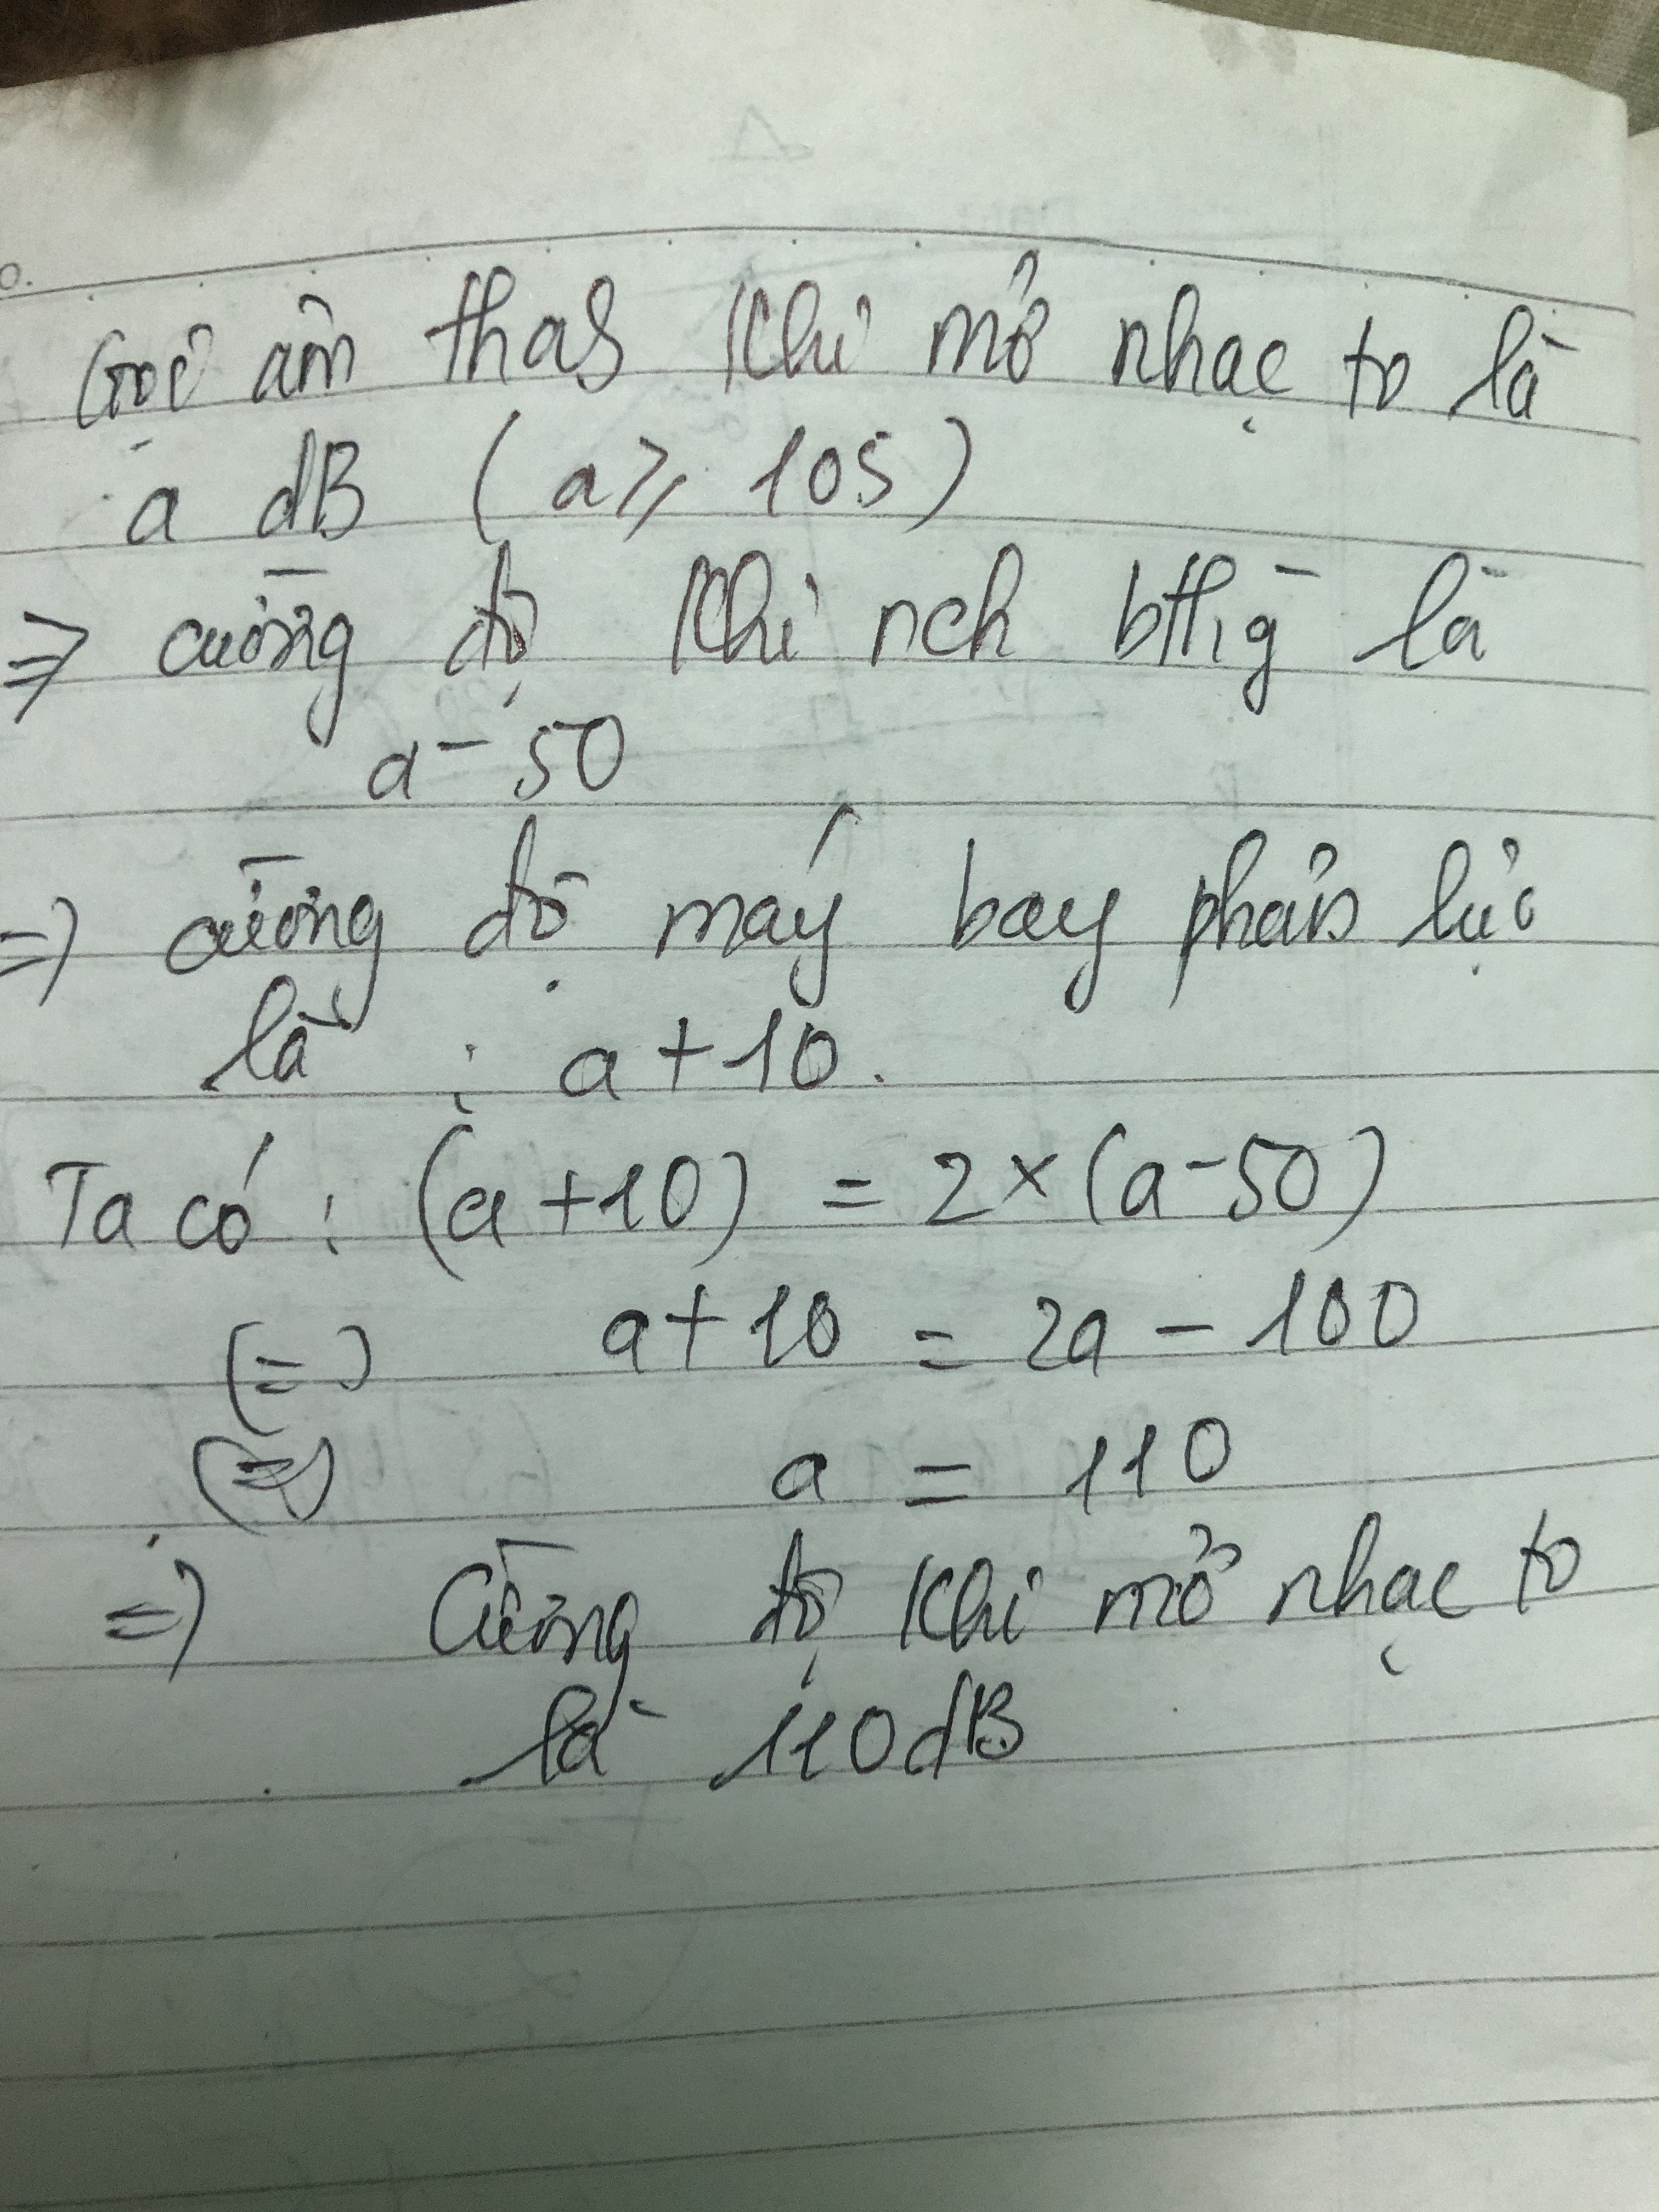 Gọi âm thah khi mở nhạc to là
a dB (a ≥ 105)
=> cường độ khi nch bthg là
a - 50
=> cường độ máy bay phản lực
là : a + 10.
Ta có : (a + 10) = 2 × (a - 50)
(=) a + 10 = 2a - 100
(=) a = 110
=> Cường độ khi mở nhạc to
là 110dB